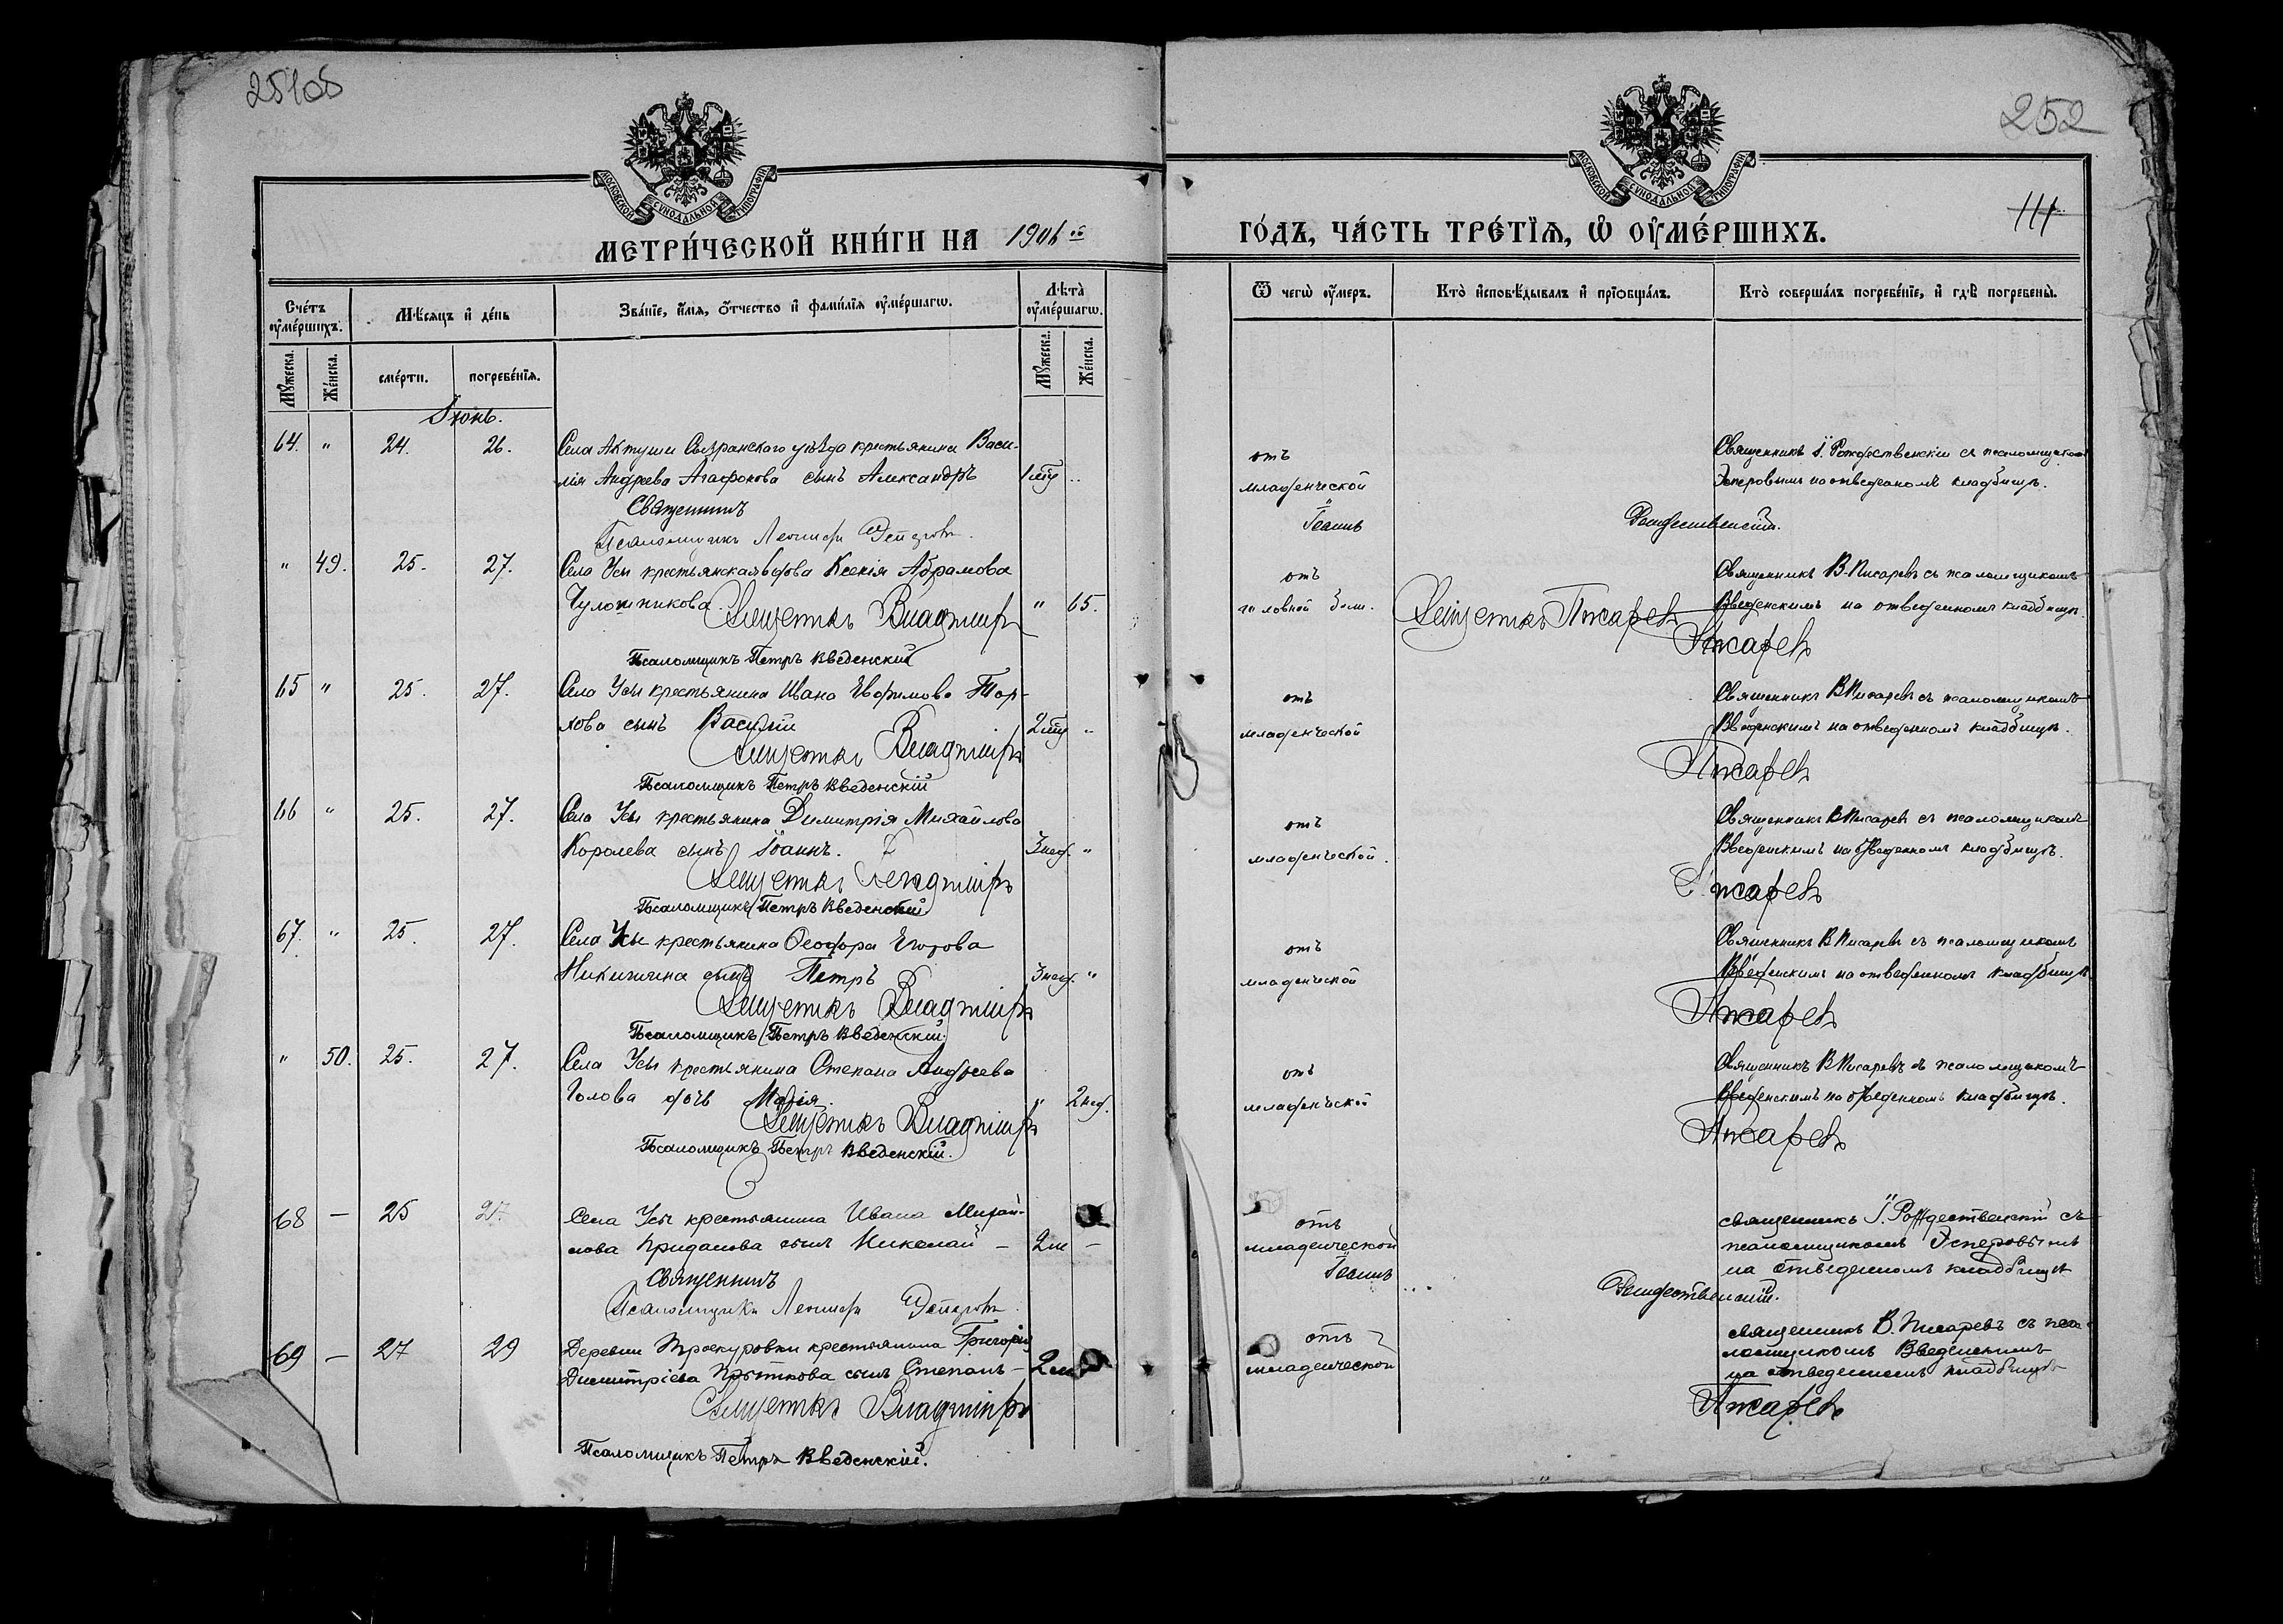 251об
252
111
МОСКОВСКОЙ СѴНОДАЛЬНОЙ ТИПОГРАФІИ
МОСКОВСКОЙ СѴНОДАЛЬНОЙ ТИПОГРАФІИ
МЕТРИ́ЧЕСКОЙ КНИ́ГИ НА 1906 й
ГО́ДЪ, ЧА́СТЬ ТРЕ́ТІѦ, Ѡ҆ ОУ҆МЕ́РШИХЪ.
Сче́тъ оу҆ме́ршихъ.
Мѣ́сяцъ и҆ де́нь
Зва́нїе, и҆́мя, ѻ҆́тчество и҆ фами́лїя оу҆ме́ршагѡ.
Лѣта̀ оу҆ме́ршагѡ.
Ѿ чегѡ̀ оу҆́меръ.
Кто̀ и҆сповѣ́дывалъ и҆ прїѡбща́лъ.
Кто̀ соверша́лъ погребе́нїе, и҆ гдѣ̀ погребены̀.
Мꙋ́жеска.
Же́нска.
сме́рти.
погребе́нїя.
Мꙋ́жеска.
Же́нска.
Іюнь.
64. " 24. 26. Села Актуши Сызранскаго уѣзда крестьянина Васи-
лія Андреева Агафонова сынъ Александръ
Священникъ
Псаломщикъ Леонидъ Эсперовъ.
отъ
младенческой
Іоаннъ
Рождественскій.
Священникъ І. Рождественскій съ псаломщикомъ
Эсперовымъ на отведенномъ кладбищѣ.
" 49. 25. 27. Села Усы крестьянская вдова Ксенія Абрамова
Чулошникова. " 65.
Священникъ Владиміръ
Псаломщикъ Петръ Введенскій
отъ
головной боли.
Священникъ Писаревъ
Священникъ В. Писаревъ съ псаломщикомъ
Введенскимъ на отведенномъ кладбищѣ.
Писаревъ
65 " 25. 27. Села Усы крестьянина Ивана Евфимова
сынъ Василій "
Священникъ Владиміръ
Псаломщикъ Петръ Введенскій
отъ
младенческой
Священникъ В Писаревъ съ псаломщикомъ
Введенскимъ на отведенномъ кладбищѣ.
Писаревъ
66 " 25. 27. Села Усы крестьянина Димитрія Михайлова
Королева сынъ Іоаннъ. 3 нед. "
Священникъ Владиміръ
Псаломщикъ Петръ Введенскій
отъ
младенческой.
Священникъ В Писаревъ съ псаломщикомъ
Введенскимъ на отведенномъ кладбищѣ.
Писаревъ
67. " 25. 27. Села Усы крестьянина Ѳеодора Егорова
Никитина сынъ Петръ 3 нед. "
Священникъ Владиміръ
Псаломщикъ Петръ Введенскій.
отъ
младенческой
Священникъ В Писаревъ съ псаломщикомъ
Введенскимъ на отведенномъ кладбищѣ
Писаревъ
" 50. 25. 27. Села Усы крестьянина Степана Андреева
Голова дочь Марія. " 2 нед.
Священникъ Владиміръ
Псаломщикъ Петръ Введенскій.
отъ
младенческой
Священникъ В Писаревъ съ псаломщикомъ
Введенскимъ на отведенномъ кладбищѣ.
Писаревъ
68 – 25 27 Села Усы крестьянина Ивана Михай-
лова Приданова сынъ Николай – 2 м –
Священникъ
Псаломщикъ Леонидъ Эсперовъ.
отъ
младенческой
Іоаннъ
Рождественскій.
священникъ І. Рождественскій съ
псаломщикомъ Эсперовымъ
на отведенномъ кладбищѣ
69 – 27 29 Деревни Троекуровки крестьянина Григорія
Димитріева сынъ Степанъ – 2 м
Священникъ Владиміръ
Псаломщикъ Петръ Введенскій.
отъ
младенческой
священникъ В. Писаревъ съ пса-
ломщикомъ Введенскимъ
на отведенномъ кладбищѣ
Писаревъ